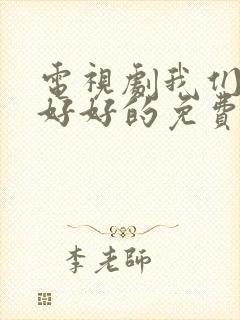 電視劇我们
好好的免費
李老師